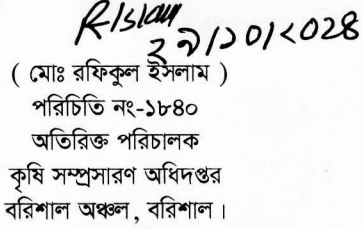 R-Islam
২৯/১০/২০২৪
( মোঃ রফিকুল ইসলাম )
পরিচিতি নং-১৮৪০
অতিরিক্ত পরিচালক
কৃষি সম্প্রসারণ অধিদপ্তর
বরিশাল অঞ্চল, বরিশাল।